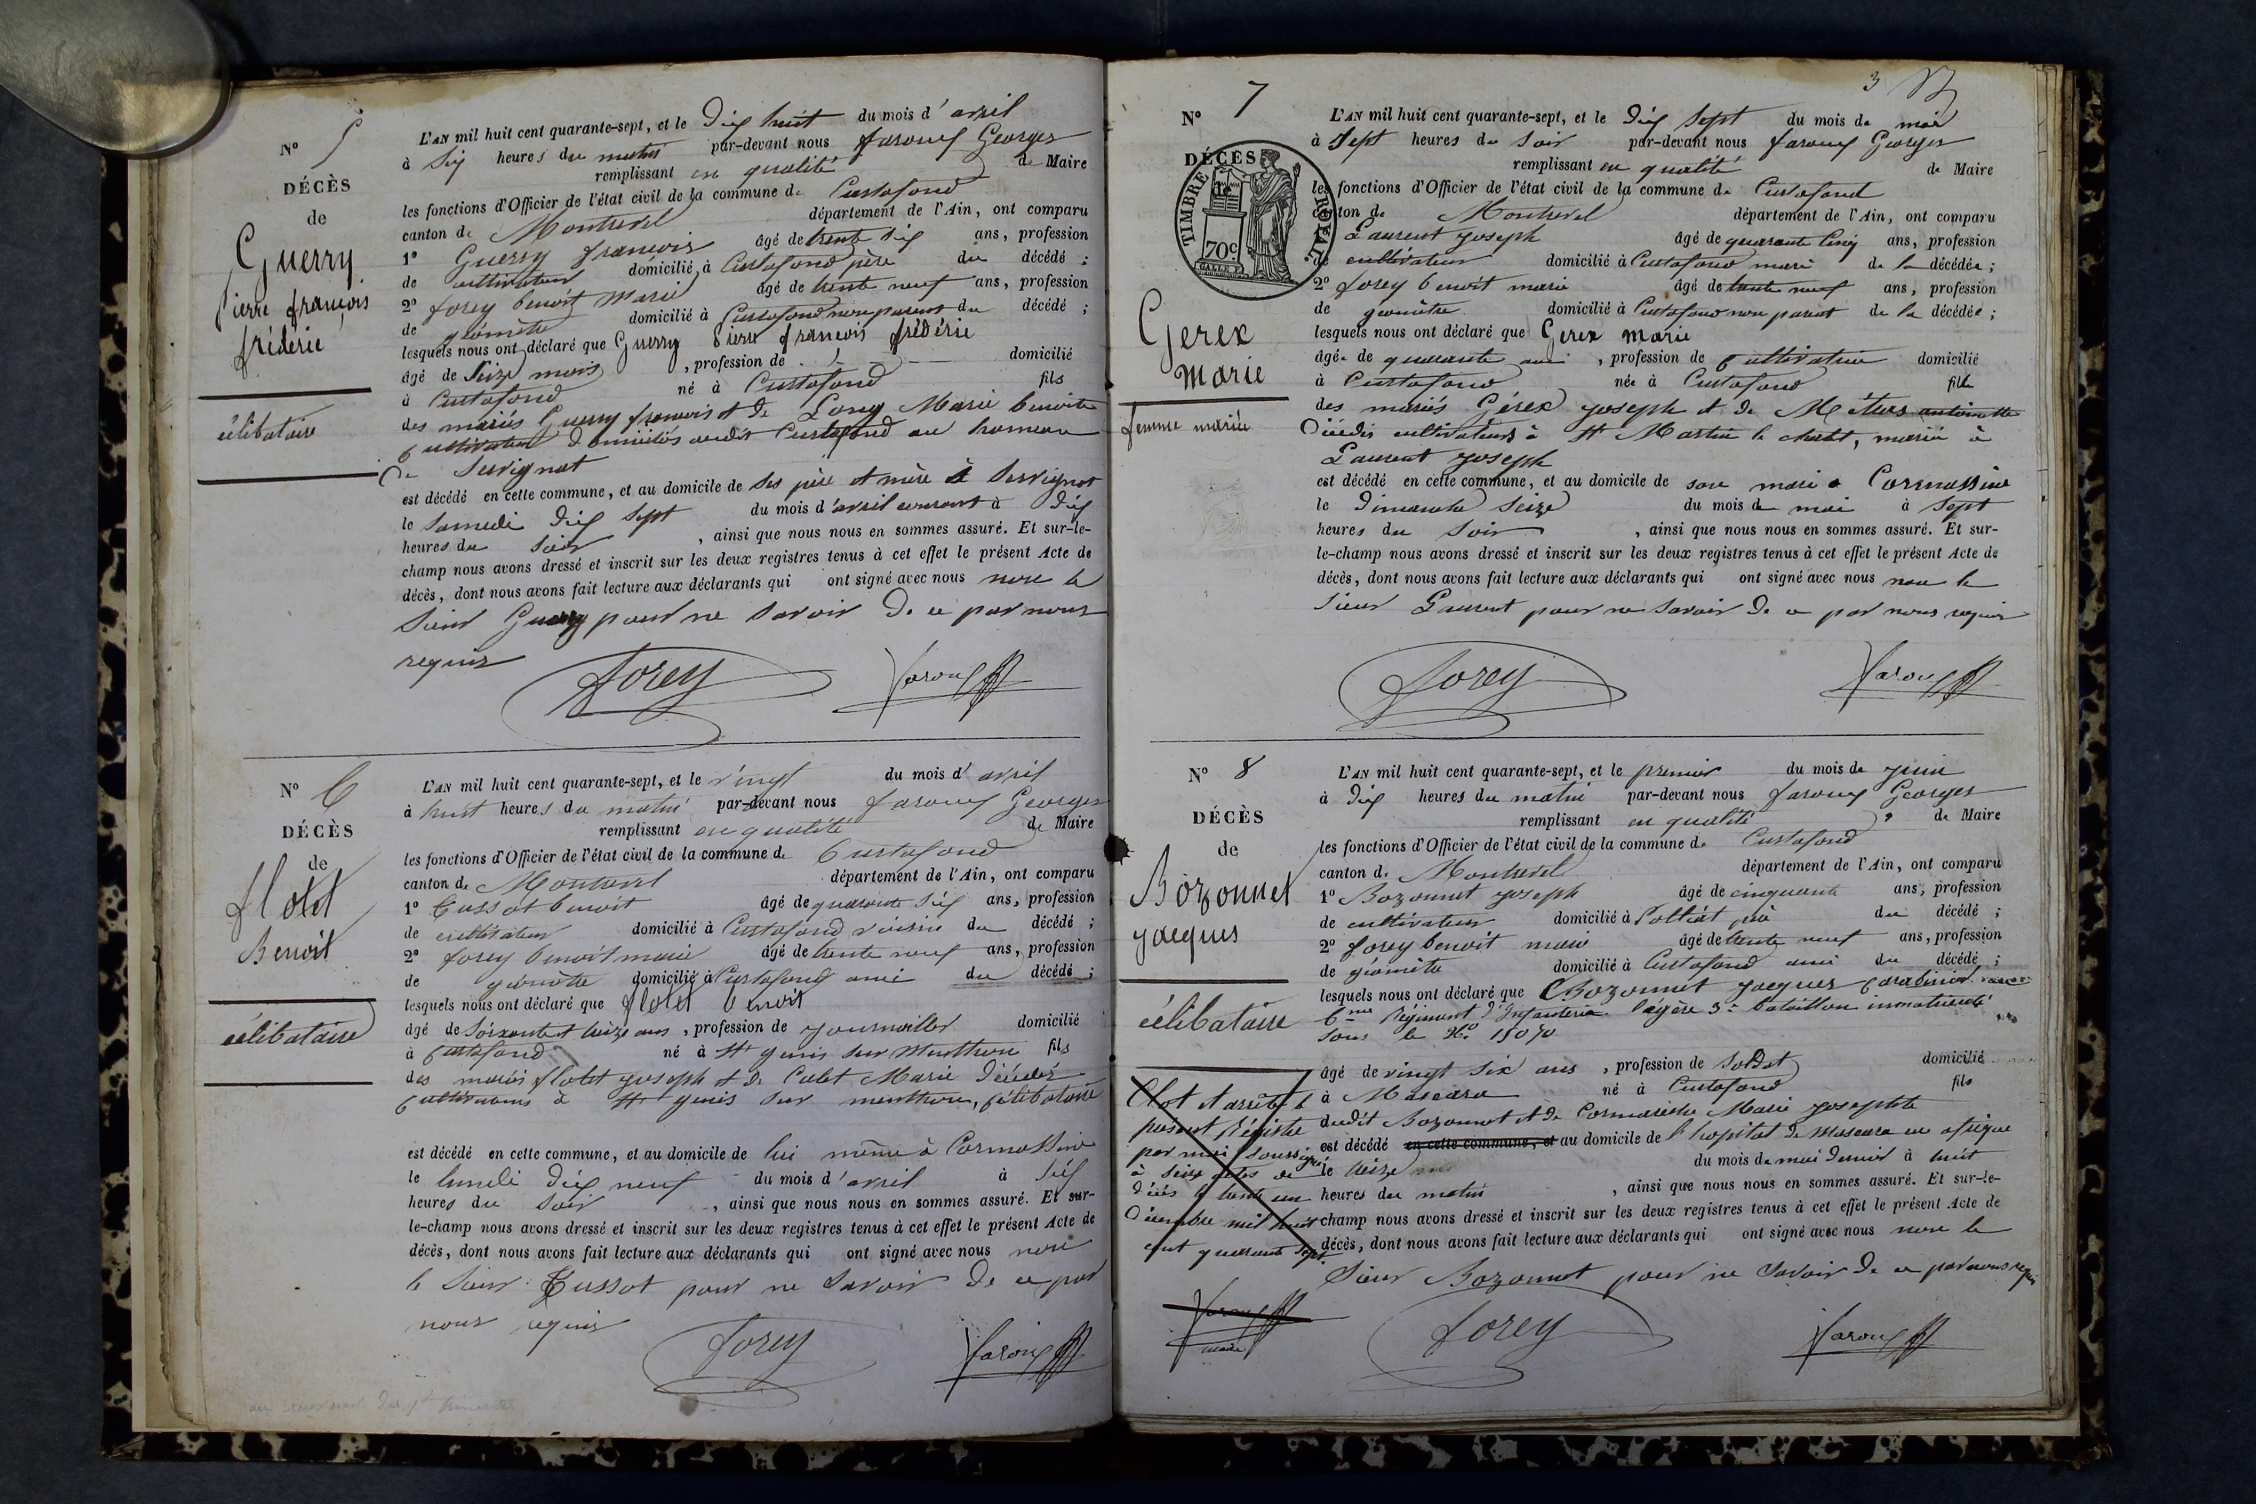 N° 5
DÉCÈS
de
Guerry
Pierre françois
fréderic
célibataire
L'AN mil huit cent quarante-sept, et le Dix huit du mois d'avril
à Six heures du matin par-devant nous faroux Georges
remplissant en qualité de Maire
les fonctions d'Officier de l'état civil de la commune de Curtafond
canton de Montrevel département de l'Ain, ont comparu
1° Guerry françois âgé de trente dix ans, profession
de cultivateur domicilié à Curtafond père du décédé ;
2° forey benoit Marie âgé de trente neuf ans, profession
de géomètre domicilié à Curtafond non parent du décédé ;
lesquels nous ont déclaré que Guerry Pierre françois fréderic
âgé de Seize mois , profession de domicilié
à Curtafond né à Curtafond fils
des mariés Guerry françois et de Long Marie benoite
Cultivateurs Domiciliés audit Curtafond au hameau
De Servignat
est décédé en cette commune, et au domicile de ses père et mère à Servignat
le Samedi Dix Sept du mois d'avril courant à Dix
heures du Soir , ainsi que nous nous en sommes assuré. Et sur-le-
champ nous avons dressé et inscrit sur les deux registres tenus à cet effet le présent Acte de
décès, dont nous avons fait lecture aux déclarants qui ont signé avec nous non le
Sieur Guerry pour ne savoir De ce par nous
requis
forey faroux
N° 6
DÉCÈS
de
flotet
Benoit
célibataire
L'AN mil huit cent quarante-sept, et le vingt du mois d'avril
à huit heures du matin par-devant nous faroux Georges
remplissant en qualité de Maire
les fonctions d'Officier de l'état civil de la commune de Curtafond
canton de Montrevel département de l'Ain, ont comparu
1° Cussot benoit âgé de quarante Dix ans, profession
de cultivateur domicilié à Curtafond voisin du décédé ;
2° forey benoit marie âgé de trente neuf ans, profession
de géomètre domicilié à Curtafond ami du décédé ;
lesquels nous ont déclaré que flotet benoit
âgé de Soixante et treize ans , profession de journaillier domicilié
à Curtafond né à St genis sur Menthon fils
des mariés flotet joseph et De Calet Marie Décédés
Cultivateurs à St genis sur menthon, célibataire
est décédé en cette commune, et au domicile de lui même à Cormassine
le lundi Dix neuf du mois d'avril à Dix
heures du Soir , ainsi que nous nous en sommes assuré. Et sur-
le-champ nous avons dressé et inscrit sur les deux registres tenus à cet effet le présent Acte de
décès, dont nous avons fait lecture aux déclarants qui ont signé avec nous non
le Sieur Cussot pour ne savoir De ce par
nous requis
forey faroux
3
N° 7
DÉCÈS
de
TIMBRE ROYAL
70 c.
Gerex
Marie
femme mariée
L'AN mil huit cent quarante-sept, et le Dix Sept du mois de mai
à Sept heures du Soir par-devant nous faroux Georges
remplissant en qualité de Maire
les fonctions d'Officier de l'état civil de la commune de Curtafond
canton de Montrevel département de l'Ain, ont comparu
1° Laurent joseph âgé de quarante Cinq ans, profession
de cultivateur domicilié à Curtafond mari de la décédée ;
2° forey benoit marie âgé de trente neuf ans, profession
de géomètre domicilié à Curtafond non parent de la décédée ;
lesquels nous ont déclaré que Gerex marie
âgée de quarante ans , profession de Cultivatrice domicilié
à Curtafond née à Curtafond fille
des mariés Gérex joseph et de antoinette
Décédés cultivateurs à St Martin le chatel, mariée à
Laurent joseph
est décédé en cette commune, et au domicile de son mari à Cormassine
le Dimanche Seize du mois de mai à Sept
heures du Soir , ainsi que nous nous en sommes assuré. Et sur-
le-champ nous avons dressé et inscrit sur les deux registres tenus à cet effet le présent Acte de
décès, dont nous avons fait lecture aux déclarants qui ont signé avec nous non le
Sieur Laurent pour ne savoir De ce par nous requis
forey faroux
N° 8
DÉCÈS
de
Bozonnet
jacques
célibataire
L'AN mil huit cent quarante-sept, et le premier du mois de juin
à Dix heures du matin par-devant nous faroux Georges
remplissant en qualité de Maire
les fonctions d'Officier de l'état civil de la commune de Curtafond
canton de Montrevel département de l'Ain, ont comparu
1° Bozonnet joseph âgé de cinquante ans, profession
de cultivateur domicilié à Polliat père du décédé ;
2° forey benoit marie âgé de trente neuf ans, profession
de géomètre domicilié à Curtafond ami du décédé ;
lesquels nous ont déclaré que Bozonnet jacques Carabinier
6me Régiment D'Infanterie légère 3e bataillon immatriculé
sous le N° 15070
âgé de vingt Six ans , profession de Soldat domicilié
à Mascara né à Curtafond fils
dudit Bozonnet et De Cormarèche Marie josephte
est décédé en cette commune, et au domicile de l'hopital De Mascara en afrique
le treize du mois de mai Dernier à huit
heures du matin , ainsi que nous nous en sommes assuré. Et sur-le-
champ nous avons dressé et inscrit sur les deux registres tenus à cet effet le présent Acte de
décès, dont nous avons fait lecture aux déclarants qui ont signé avec nous non le
Sieur Bozonnet pour ne savoir De ce par nous requis
Clot et arrêté le
présent Régistre
par moi soussigné
à Seize actes de
Décès le trente un
Décembre mil huit
cent quarante sept.
faroux
maire
forey faroux